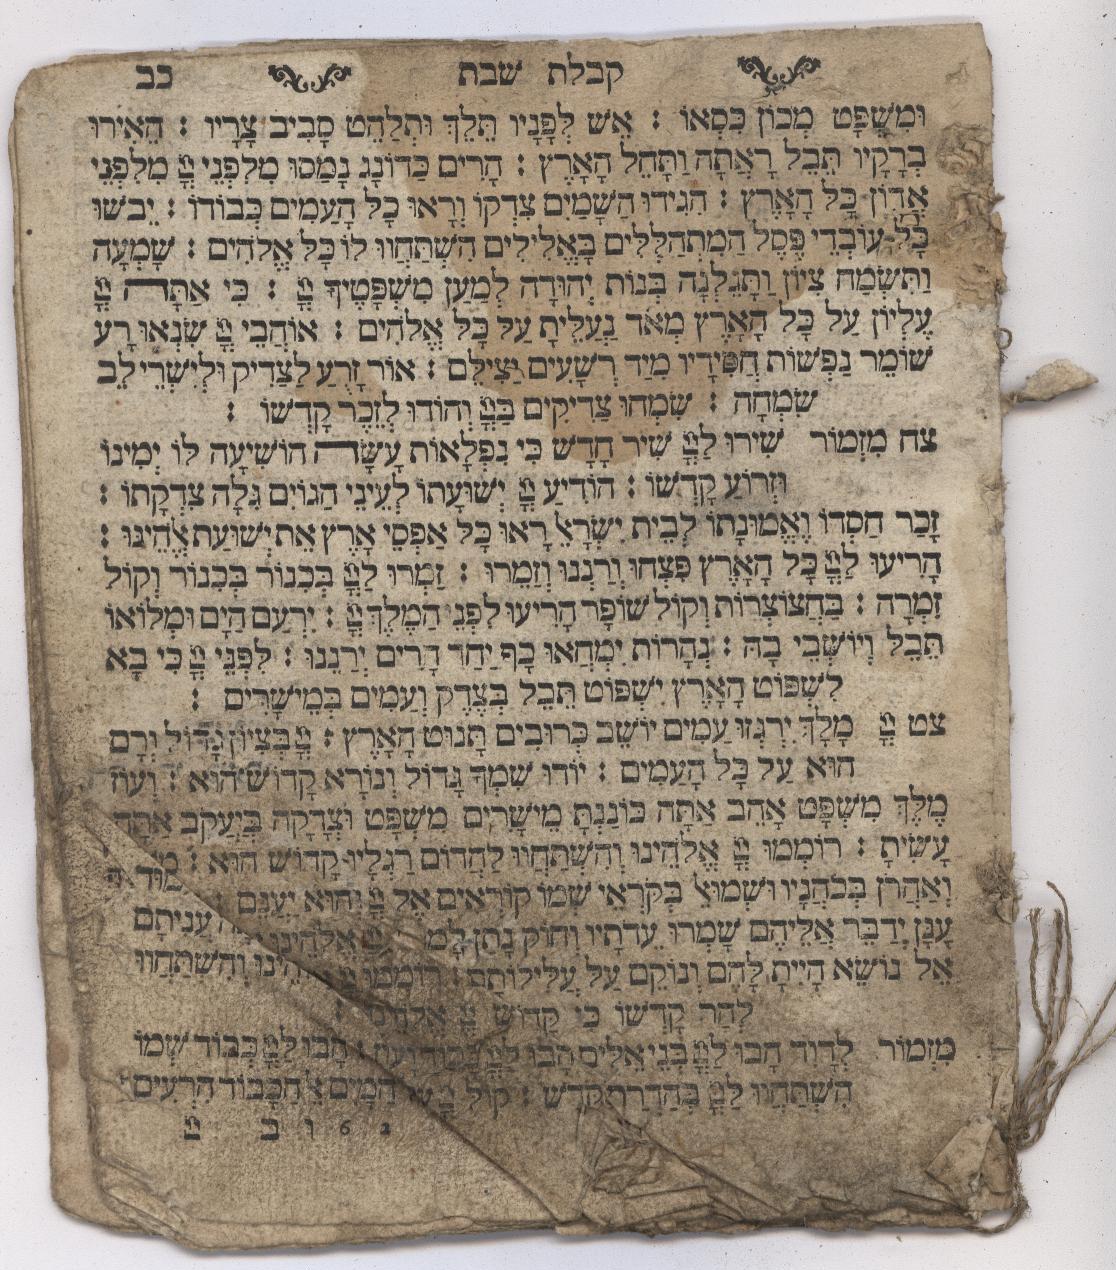 קבלת שבת כב
וּמִשְׁפָּט מְכוֹן כִּסְאוֹ : אֵשׁ לְפָנָיו תֵּלֵךְ וּתְלַהֵט סָבִיב צָרָיו : הֵאִירוּ
בְרָקָיו תֵּבֵל רָאֲתָה וַתָּחֵל הָאָרֶץ : הָרִים כַּדּוֹנָג נָמַסּוּ מִלִּפְנֵי יְיָ מִלִּפְנֵי
אֲדוֹן כָּל הָאָרֶץ : הִגִּידוּ הַשָּׁמַיִם צִדְקוֹ וְרָאוּ כָל הָעַמִּים כְּבוֹדוֹ : יֵבֹשׁוּ
כָּל עוֹבְדֵי פֶסֶל הַמִּתְהַלְלִים בָּאֱלִילִים הִשְׁתַּחֲווּ לוֹ כָּל אֱלֹהִים : שָׁמְעָה
וַתִּשְׂמַח צִיּוֹן וַתָּגֵלְנָה בְּנוֹת יְהוּדָה לְמַעַן מִשְׁפָּטֶיךָ יְיָ : כִּי אַתָּה יְיָ
עֶלְיוֹן עַל כָּל הָאָרֶץ מְאֹד נַעֲלֵיתָ עַל כָּל אֱלֹהִים : אוֹהֲבֵי יְיָ שִׂנְאוּ רָע
שׁוֹמֵר נַפְשׁוֹת חֲסִידָיו מִיַּד רְשָׁעִים יַצִּילֵם : אוֹר זָרֻעַ לַצַּדִּיק וּלְיִשְׁרֵי לֵב
שִׂמְחָה : שִׂמְחוּ צַדִּיקִים בַּיְיָ וְהוֹדוּ לְזֵכֶר קָדְשׁוֹ :
צח מִזְמוֹר שִׁירוּ לַיְיָ שִׁיר חָדָשׁ כִּי נִפְלָאוֹת עָשָׂה הוֹשִׁיעָה לּוֹ יְמִינוֹ
וּזְרוֹעַ קָדְשׁוֹ : הוֹדִיעַ יְיָ יְשׁוּעָתוֹ לְעֵינֵי הַגּוֹיִם גִּלָּה צִדְקָתוֹ :
זָכַר חַסְדּוֹ וֶאֱמוּנָתוֹ לְבֵית יִשְׂרָאֵל רָאוּ כָל אַפְסֵי אָרֶץ אֵת יְשׁוּעַת אֱלֹהֵינוּ :
הָרִיעוּ לַיְיָ כָּל הָאָרֶץ פִּצְחוּ וְרַנְּנוּ וְזַמֵּרוּ : זַמְּרוּ לַיְיָ בְּכִנּוֹר בְּכִנּוֹר וְקוֹל
זִמְרָה : בַּחֲצוֹצְרוֹת וְקוֹל שׁוֹפָר הָרִיעוּ לִפְנֵי הַמֶּלֶךְ יְיָ : יִרְעַם הַיָּם וּמְלוֹאוֹ
תֵּבֵל וְיוֹשְׁבֵי בָהּ : נְהָרוֹת יִמְחֲאוּ כָף יַחַד הָרִים יְרַנֵּנוּ : לִפְנֵי יְיָ כִּי בָא
לִשְׁפּוֹט הָאָרֶץ יִשְׁפּוֹט תֵּבֵל בְּצֶדֶק וְעַמִּים בְּמֵישָׁרִים :
צט יְיָ מָלָךְ יִרְגְּזוּ עַמִּים יוֹשֵׁב כְּרוּבִים תָּנוּט הָאָרֶץ : יְיָ בְּצִיּוֹן גָּדוֹל וְרָם
הוּא עַל כָּל הָעַמִּים : יוֹדוּ שִׁמְךָ גָּדוֹל וְנוֹרָא קָדוֹשׁ הוּא : וְעוֹז
מֶלֶךְ מִשְׁפָּט אָהֵב אַתָּה כּוֹנַנְתָּ מֵישָׁרִים מִשְׁפָּט וּצְדָקָה בְּיַעֲקֹב אַתָּה
עָשִׂיתָ : רוֹמְמוּ יְיָ אֱלֹהֵינוּ וְהִשְׁתַּחֲווּ לַהֲדוֹם רַגְלָיו קָדוֹשׁ הוּא :
וְאַהֲרֹן בְּכֹהֲנָיו וּשְׁמוּאֵל בְּקֹרְאֵי שְׁמוֹ קוֹרְאִים אֶל יְיָ וְהוּא יַעֲנֵם : בְּעַמּוּד
עָנָן יְדַבֵּר אֲלֵיהֶם שָׁמְרוּ עֵדֹתָיו וְחוֹק נָתַן לָמוֹ יְיָ אֱלֹהֵינוּ אַתָּה עֲנִיתָם
אֵל נוֹשֵׂא הָיִיתָ לָהֶם וְנוֹקֵם עַל עֲלִילוֹתָם : רוֹמְמוּ יְיָ אֱלֹהֵינוּ וְהִשְׁתַּחֲווּ
לְהַר קָדְשׁוֹ כִּי קָדוֹשׁ יְיָ אֱלֹהֵינוּ :
מִזְמוֹר לְדָוִד הָבוּ לַיְיָ בְּנֵי אֵלִים הָבוּ לַיְיָ כָּבוֹד וָעוֹז : הָבוּ לַיְיָ כְּבוֹד שְׁמוֹ
הִשְׁתַּחֲווּ לַיְיָ בְּהַדְרַת קֹדֶשׁ : קוֹל יְיָ עַל הַמָּיִם אֵל הַכָּבוֹד הִרְעִים
2 6 ו ב יְיָ